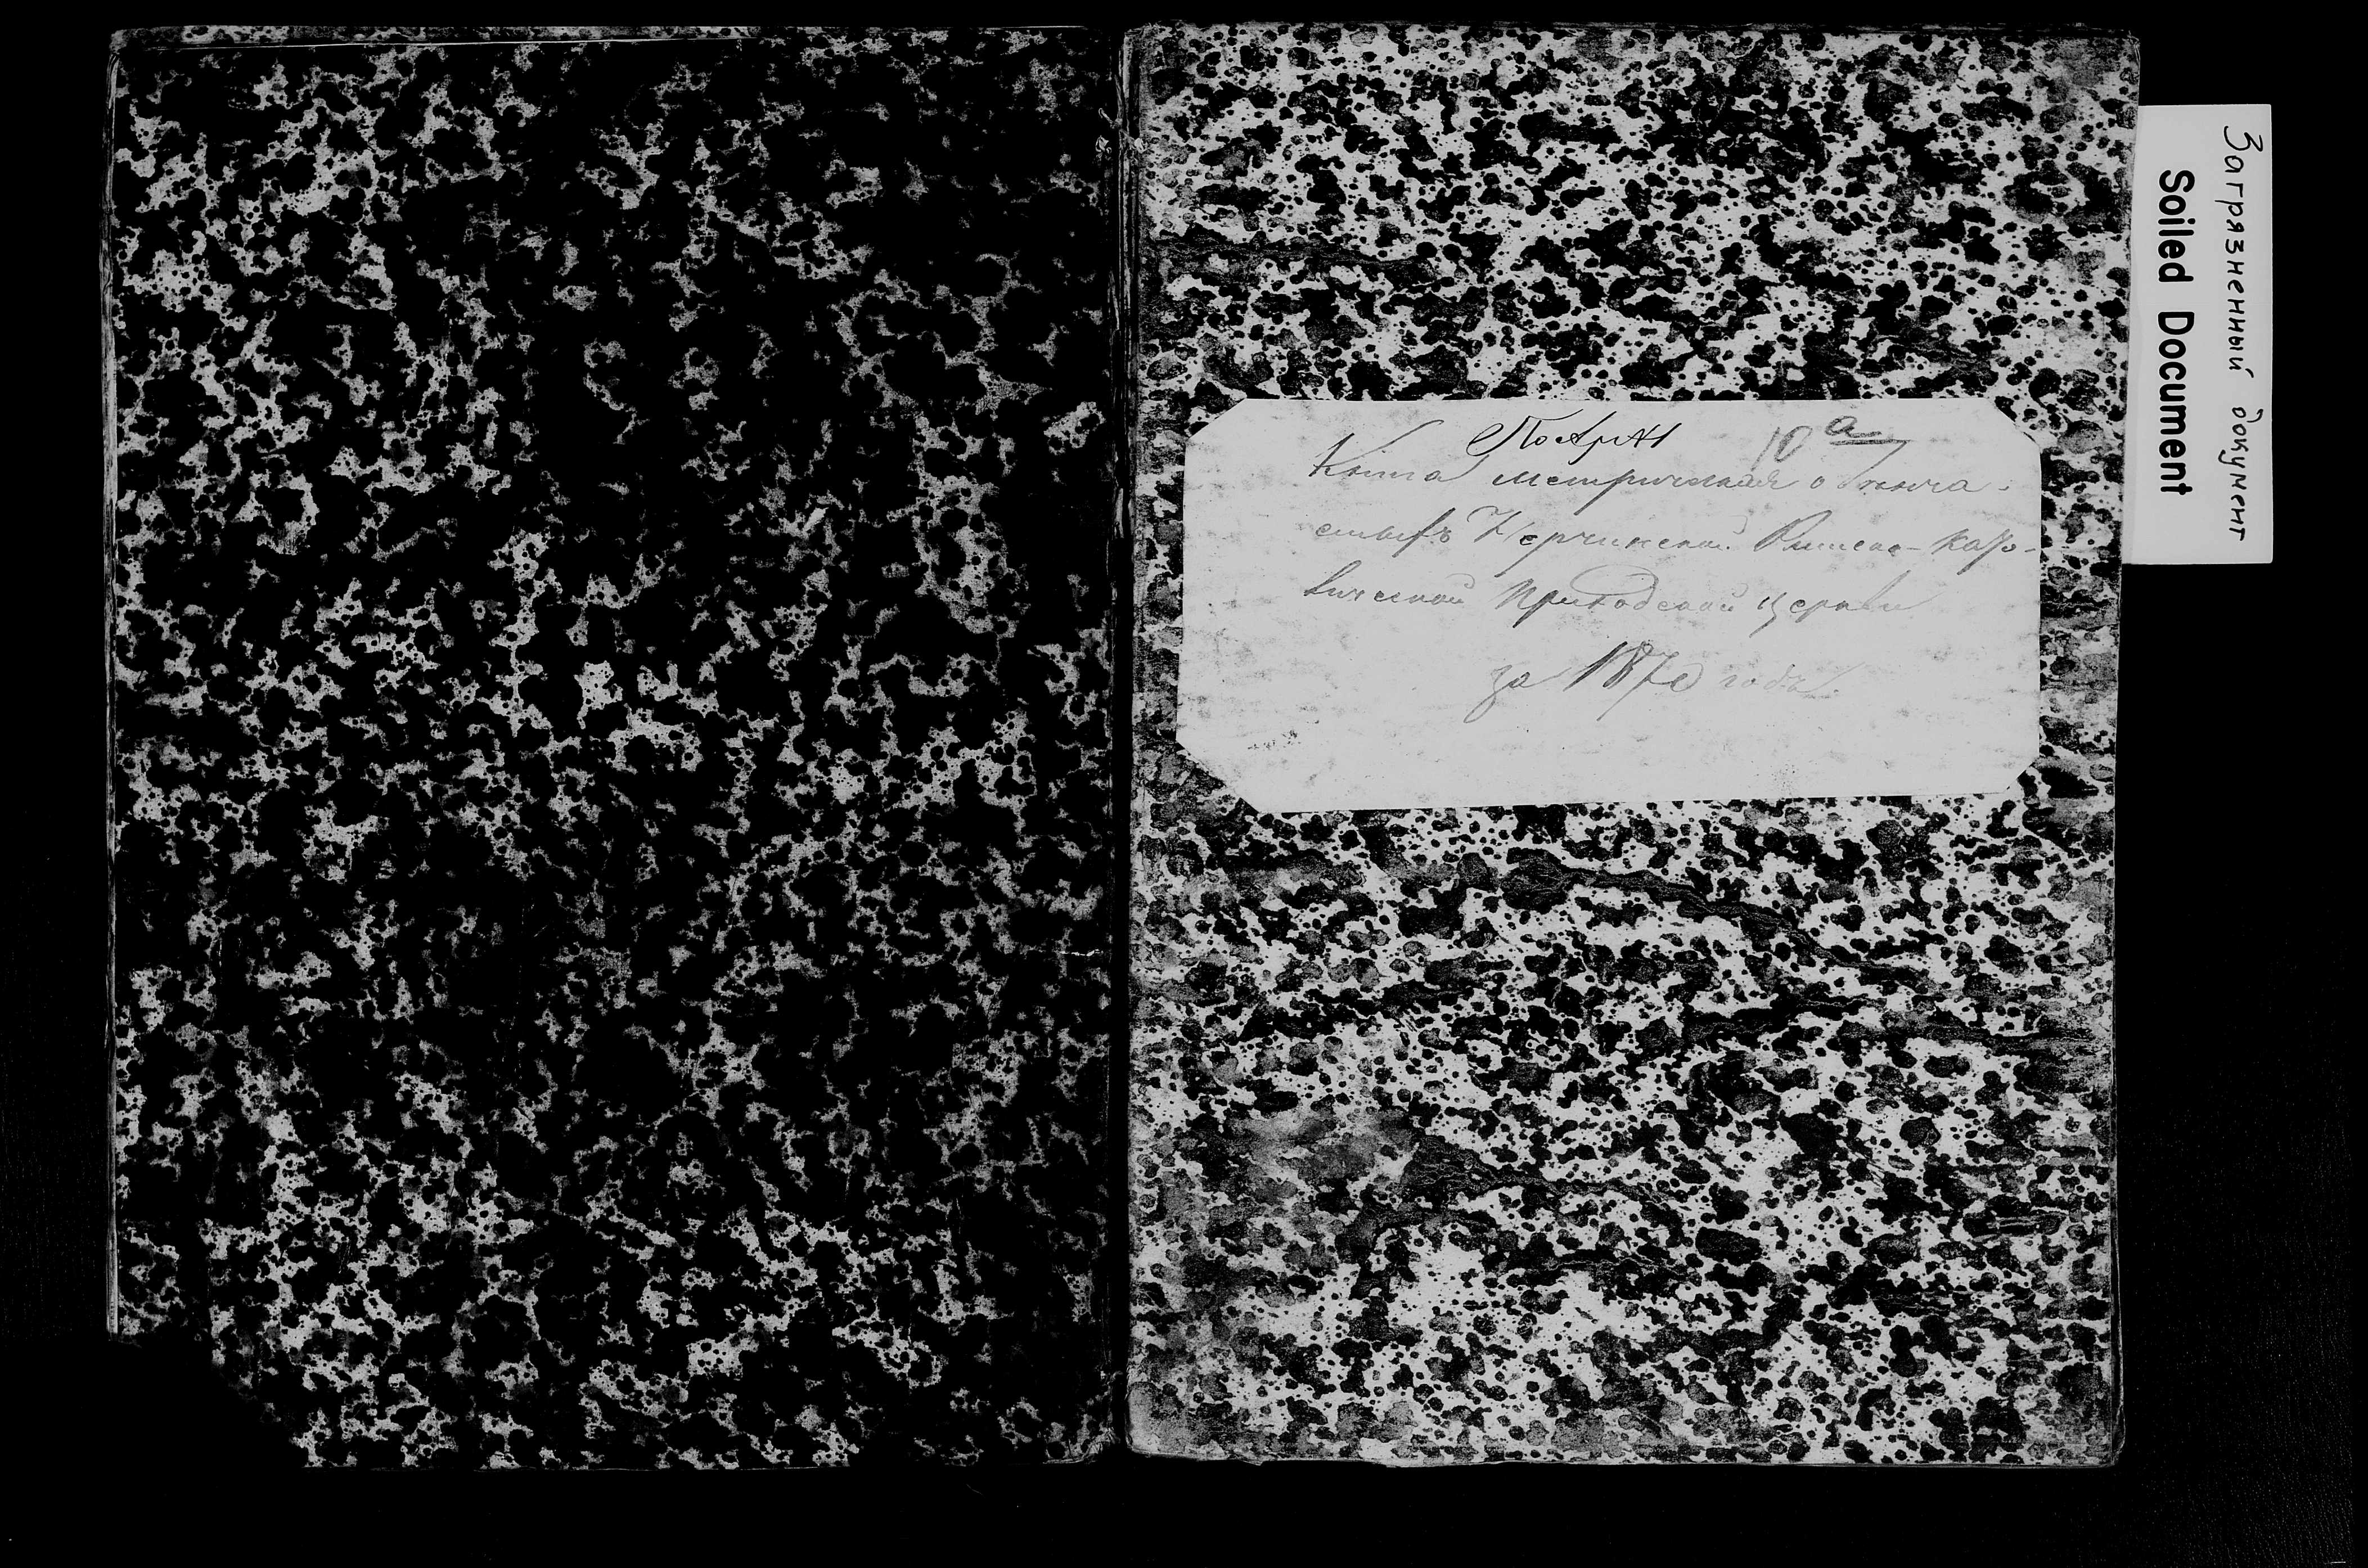 10 а
Книга метрическая о бракоча-
емыхъ Нерчинской Римско-Като-
лической Приходской церкви
за 1870 годъ.
Загрязненный документ
Soiled Document